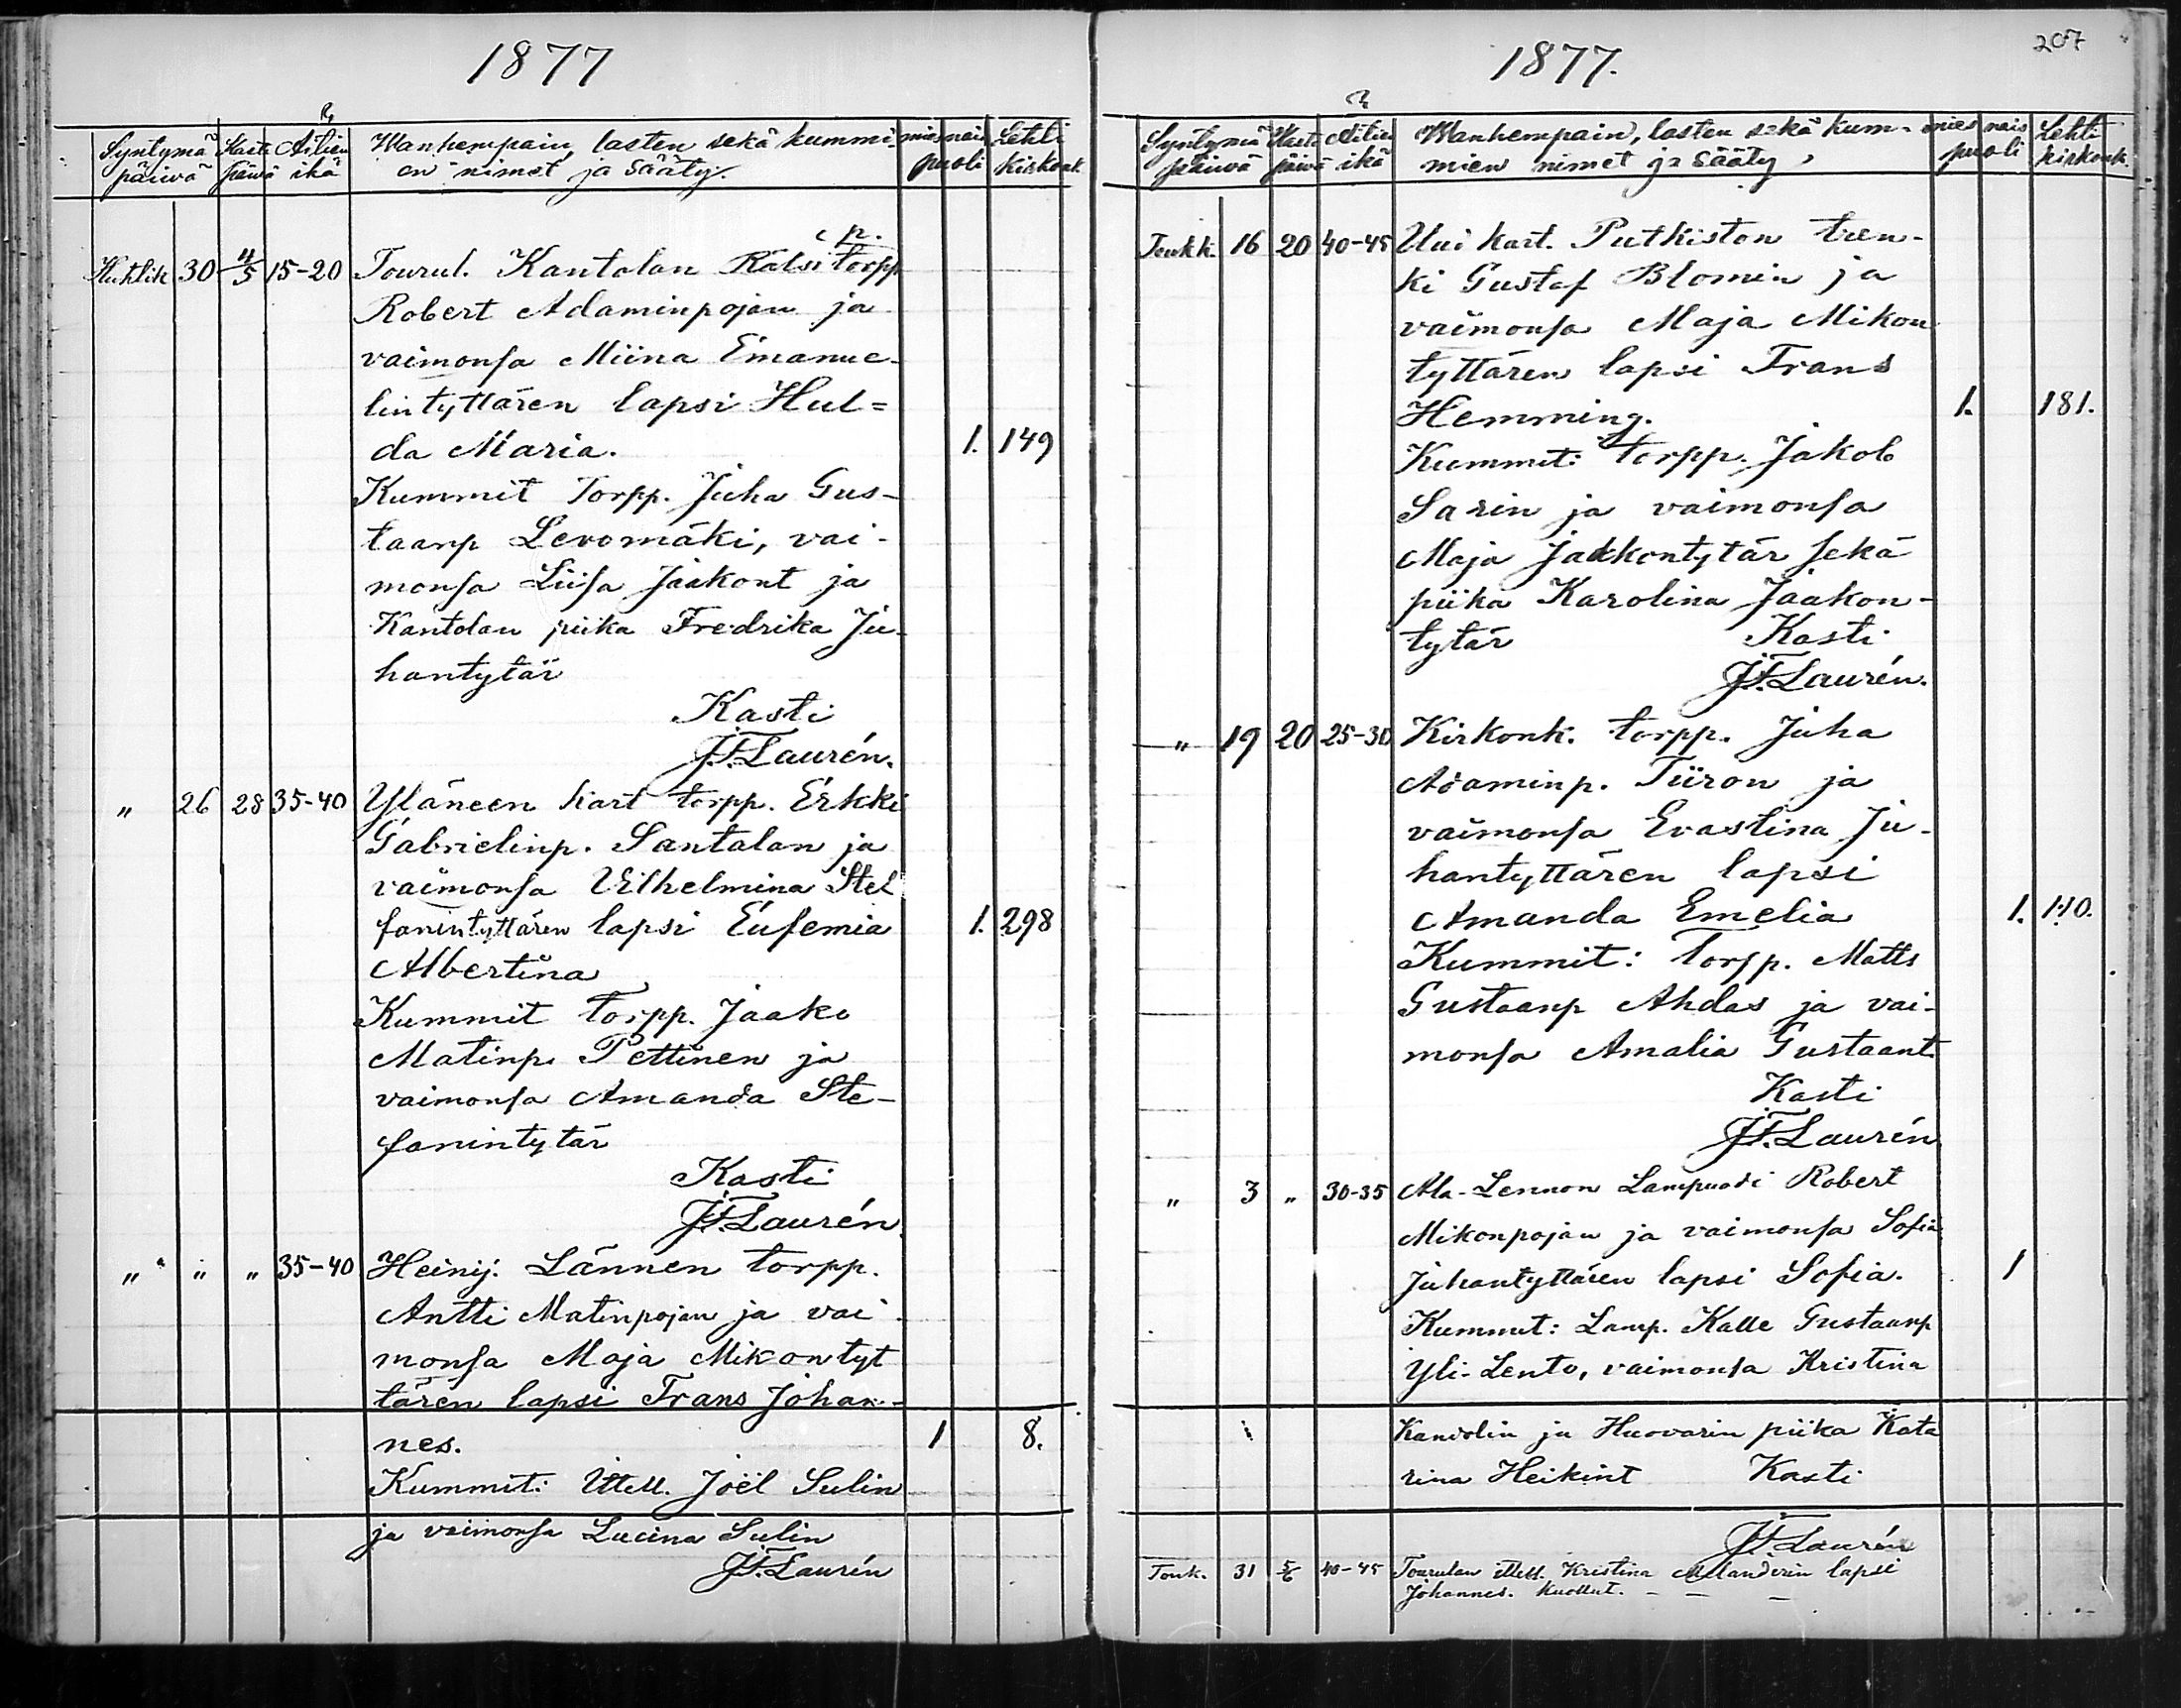 1877
Syntymä Kaste Äitien Wanhempain, lasten sekä kummi- mies nais Lehti
päivä päivä ikä en nimet ja Sääty. puoli kirkonk.
Huhtik 30 4/5 15-20 Tourul. Kantolan Rätsi torpp
Robert Adaminpojan ja
vaimonsa Miina Emanue-
lintyttären lapsi Hul=
da Maria. 1. 149
Kummit Torpp. Juha Gus-
taanp Levomäki, vai-
monsa Liisa Jaakont ja
Kantolan piika Fredrika Ju-
hantytär
Kasti
J.F. Laurén.
" 26 28 35-40 Yläneen kart torpp. Erkki
Gabrielinp. Santalan ja
vaimonsa Vilhelmina Ste
fanintyttären lapsi Eufemia 1. 298
Albertina
Kummit torpp. Jaako
Matinp. Pettinen ja
vaimonsa Amanda Ste-
fanintytär
Kasti
J.F. Laurén.
" " " 35-40 Heinij. Lännen torpp.
Antti Matinpojan ja vai
monsa Maja Mikontyt
tären lapsi Frans Johan-
nes. 1 8.
Kummit: Ittell. Joël Sulin
ja vaimonsa Lucina Sulin
J.F. Laurén
207
1877.
Syntymä Kaste Äitien Wanhempain, lasten sekä kum- mies nais Lehti
päivä päivä ikä mien nimet ja Sääty, puoli kirkonk.
Toukk. 16 20 40-45 Uui kart. Putkiston tren-
ki Gustaf Blomin ja
vaimonsa Maja Mikon
tyttären lapsi Frans
Hemming. 1. 181.
Kummit: torpp. Jakob
Sarin ja vaimonsa
Maja Jaakkontytär sekä
piika Karolina Jaakon-
tytär Kasti
J.F. Laurén.
" 19 20 25-30 Kirkonk. torpp. Juha
Adaminp. Tiiron ja
vaimonsa Evastina Ju-
hantyttären lapsi
Amanda Emelia 1. 110.
Kummit: Torpp. Matts
Gustaanp Ahdas ja vai-
monsa Amalia Gustaant.
Kasti
J.F. Laurén
" 3 " 30-35 Ala-Lennon Lampuodi Robert
Mikonpojan ja vaimonsa Sofia
Juhantyttären lapsi Sofia. 1
Kummit: Lamp. Kalle Gustaanp
Yli-Lento, vaimonsa Kristina
ja Huovarin piika Kata
rina Heikint Kasti
J.F. Laurén
Touk. 31 5/6 40-45 Tourulan ittell. Kristina Melanderin lapsi
Johannes. Kuollut. - - -